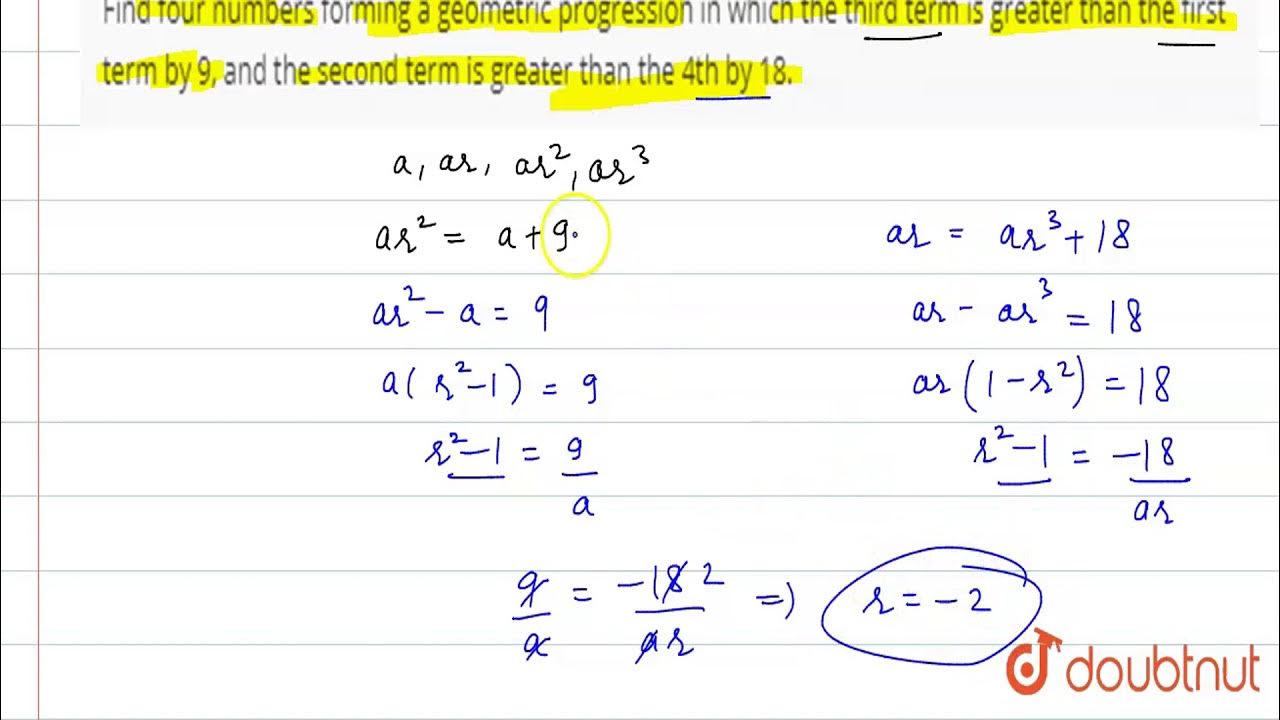 Find four numbers forming a geometric progression in which the third term is greater than the first
term by 9, and the second term is greater than the 4th by 18.
a, ar, ar², ar³
ar² = a + 9
ar = ar³ + 18
ar² - a = 9
ar - ar³ = 18
a(r² - 1) = 9
ar(1 - r²) = 18
r² - 1 = 9/a
r² - 1 = -18/ar
9/a = -18 2/ar => r = -2
doubtnut